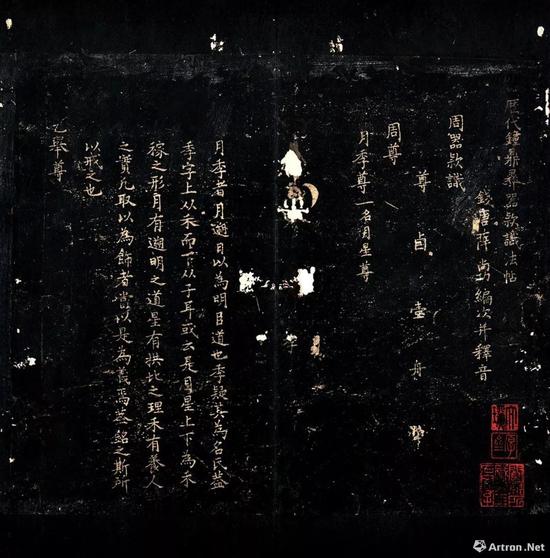 歷代鐘鼎彝器款識法帖
錢唐薛尚功編次并釋音
周器款識
尊 卣 壺 舟
周尊
月季尊一名月星尊
月季者月遡日以為明臣道也季疑其為名氏蓋
季字上从禾而下从子耳或云是月星上下為禾
稼之形月有遡明之道星有拱北之理禾有養人
之實凡取以為飾者當以是為義焉蓋銘之斯所
以戒之也
乙舉尊
Artron.Net